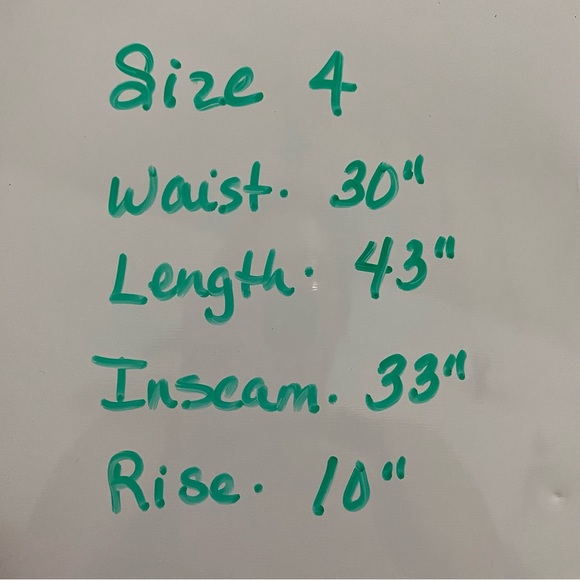 Size 4
Waist. 30"
Length. 43"
Inseam. 33"
Rise. 10"